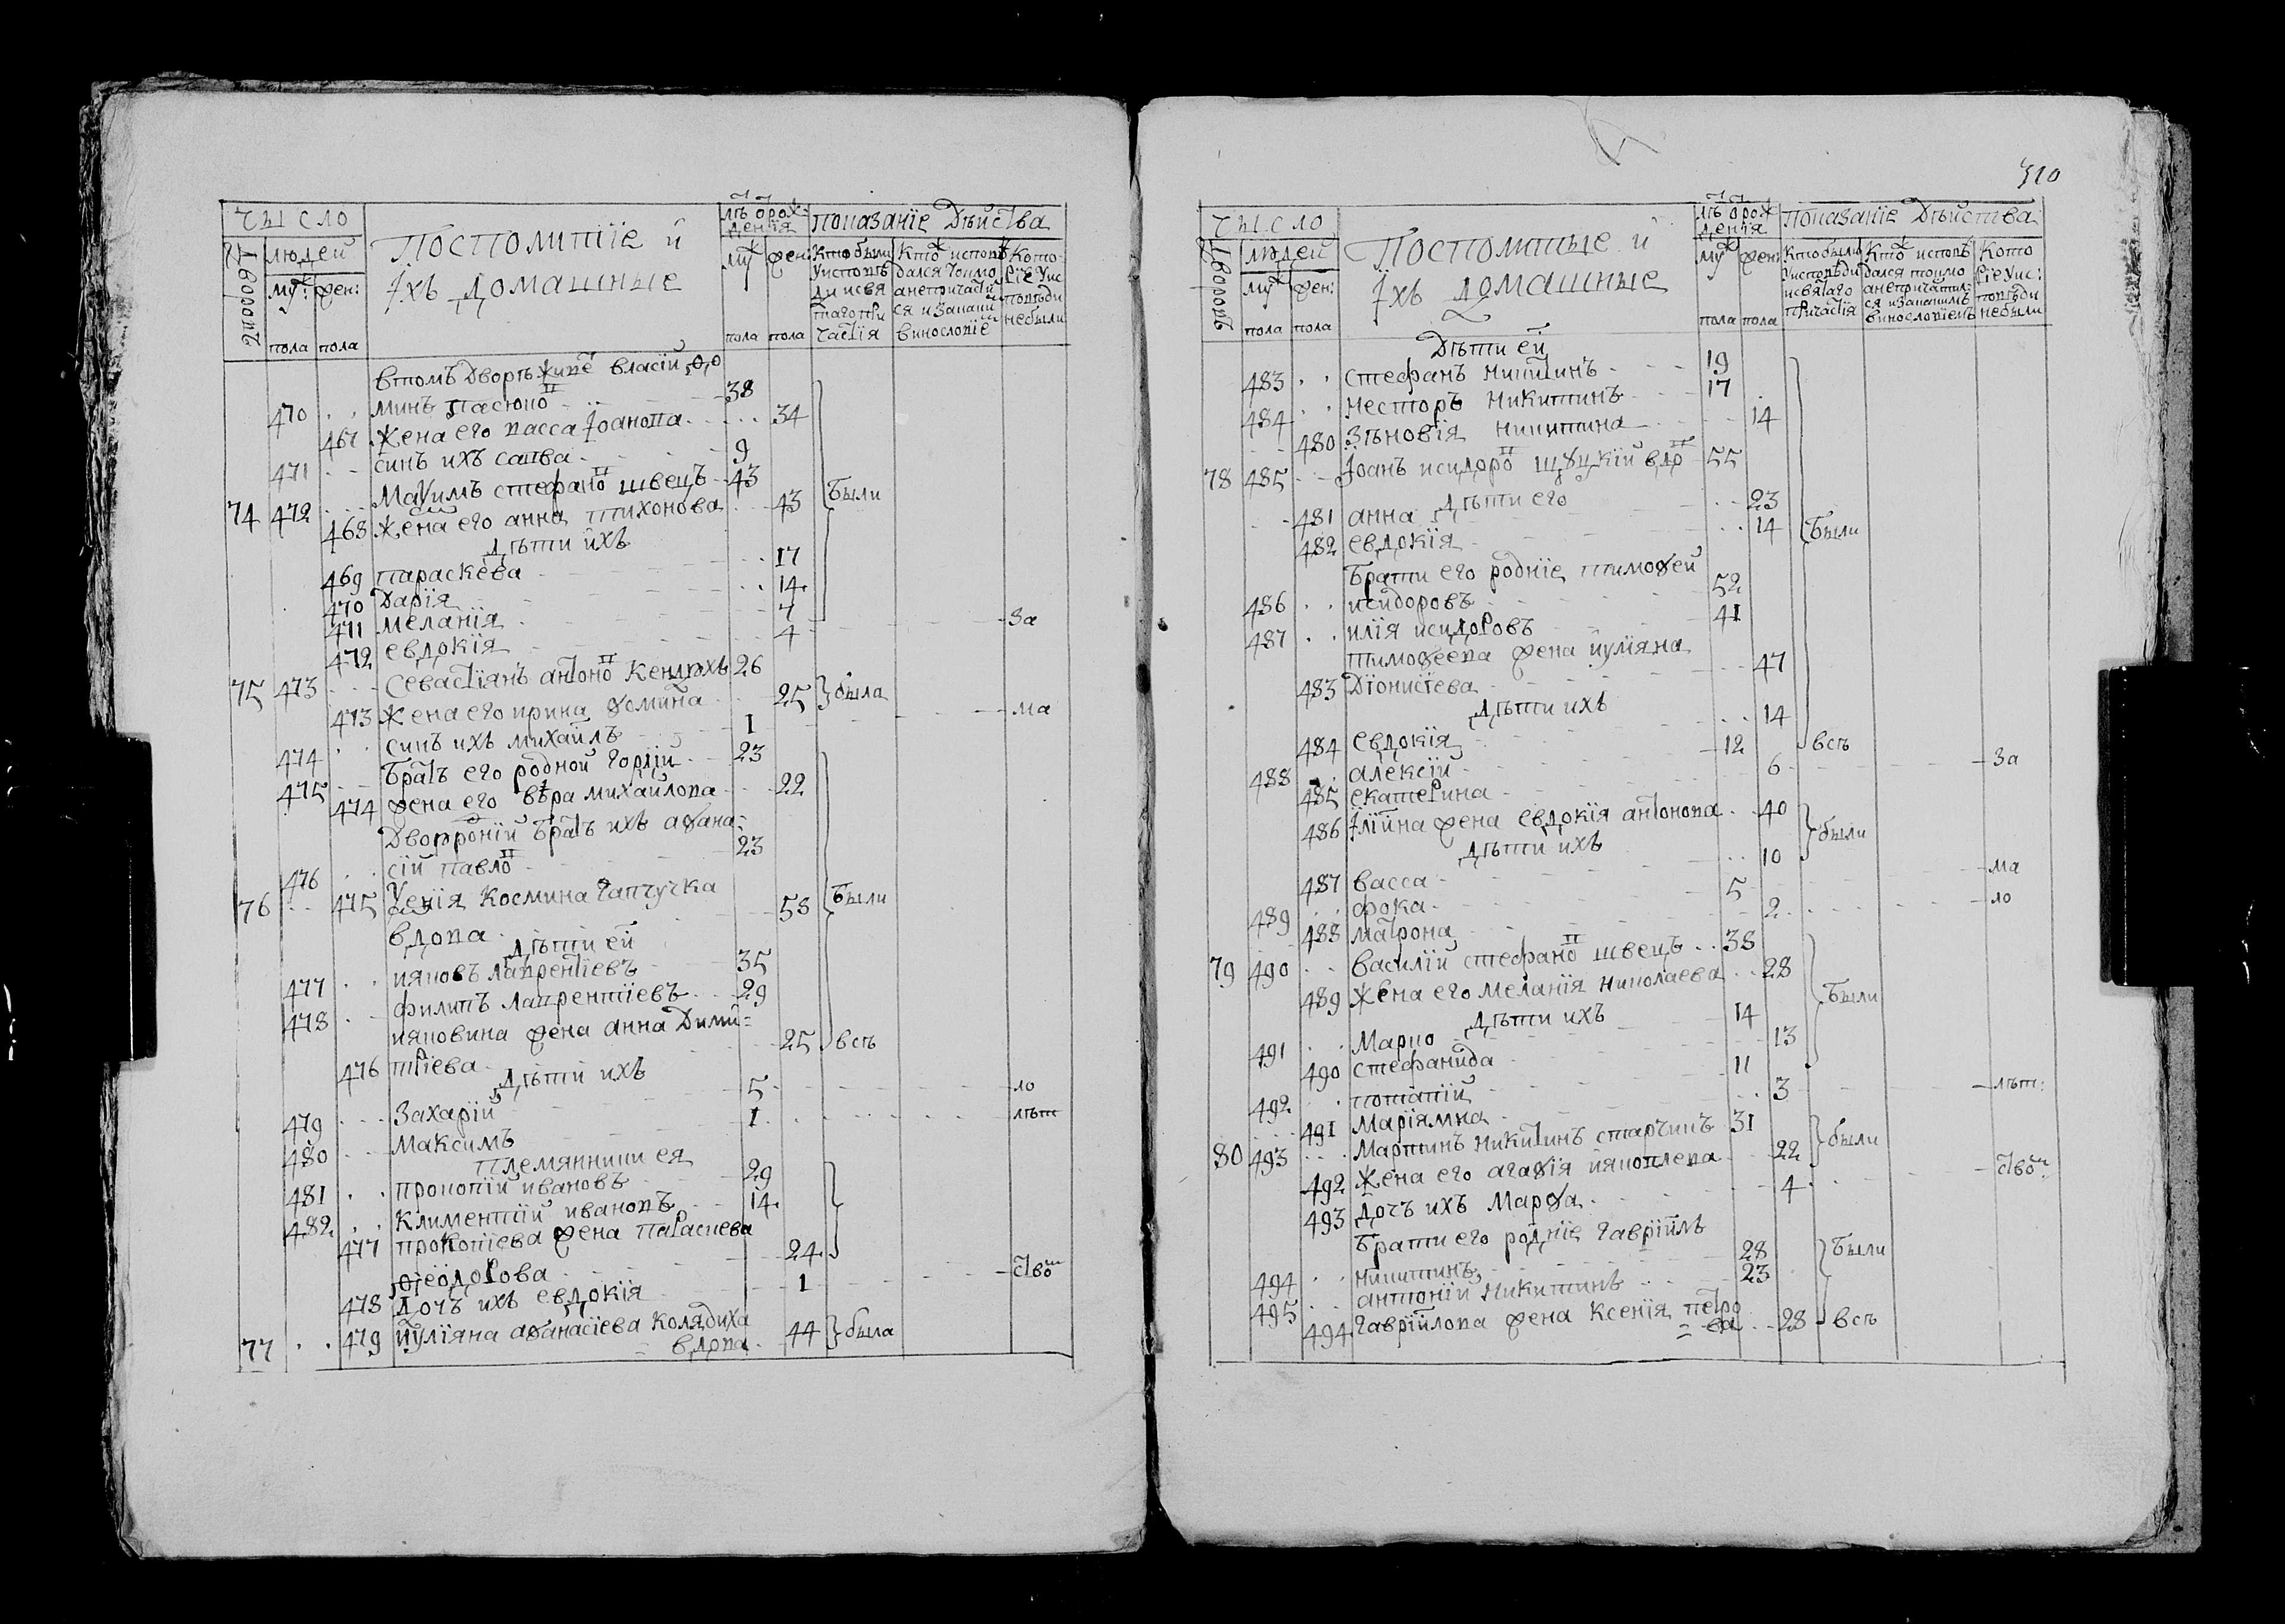 чысло
Дворовъ
людей
муж: жен:
пола пола
Посполитїе и
Їхъ домашные
лѣ орож:
денїя
муж жен:
пола пола
показанїе Дѣйства
Кто были
Уисповѣ
ди исвя
таго при
частїя
Кто исповѣ
дался токмо
анепричасти
ся изакаким
винословїе
Кото-
рїе уис
повѣди
небыли
втомъ Дворѣ живе власїй Ѳо
470 минъ пасюко 38
467 Жена его васса Їоанова 34
471 синъ ихъ савва 9
74 472 Маѯимъ стефано швецъ 43 были
468 Жена его анна тихонова 43
Дѣти ихъ
469 параскева 17
470 Дарїя 14
471 меланїя 7
472 евдокїя 4 За
75 473 Севастїянъ антоно Кендюхъ 26
473 Жена его ирина ѳомина 25 была
474 синъ ихъ михаилъ 1 ма
475 братъ его родной Гордїй 23
474 жена его вѣра михаилова 22
Двоюроній братъ ихъ аѳана-
476 сїй павло 23
76 475 Ѯенїя Космина Гапчучка 58 были
вдова
Дѣти ей
477 ияковъ лаврентїевъ 35
478 филипъ лаврентїевъ 29
ияковина жена анна Дими=
476 трїева 25 всѣ
Дѣти ихъ
479 Захарїй 5 ло
480 Максимъ 1 лѣт
племянники ея
481 прокопїй ивановъ 29
482 Климентїй ивановъ 14
477 прокопїева жена параскева
Ѳеодорова 24
478 Дочъ ихъ евдокїя 1 ство
77 479 иулїяна аѳанасїева Колядиха 44 была
вдова
310
чысло
Дворовъ
людей
муж жен:
пола пола
Посполитые и
Їхъ домашные
лѣ орож
денїя
муж жен:
пола пола
показанїе Дѣйства
Кто были
Уисповѣди
исвятаго
причастїя
Кто исповѣ
дался токмо
анепричасти-
ся изакакимъ
винословїемъ
Кото
рїе уис:
повѣди
небыли
Дѣти ей
483 стефанъ никитинъ 19
484 несторъ никитинъ 17
480 Зѣновїя никитина 14
78 485 Їоанъ исидоро щуцкїй вдо 55
Дѣти его
481 анна 23
482 евдокїя 14 были
Брати его роднїе тимоѳей
486 исидоровъ 52
487 илїя исидоровъ 41
тимоѳеева жена иулїяна
483 Дїонисїева 47
Дѣти ихъ
484 евдокїя 14 всѣ
488 алексїй 12
485 екатерина 6 За
486 Їлїина жена евдокїя антонова 40 были
Дѣти ихъ
487 васса 10 ма
489 фока 5 ло
488 матрона 2
79 490 василїй стефано швецъ 38
489 Жена его меланїя николаева 28 были
Дѣти ихъ
491 Марко 14
490 стефанида 13
492 потапїй 11
491 Марїямна 3 лѣт:
80 493 Мартинъ никитинъ старчикъ 31 были
492 Жена его агаѳїя ияковлева 22
493 Дочъ ихъ Марѳа 4 ство
Брати его роднїе Гаврїилъ
494 никитинъ 28 были
495 антонїй никитинъ 23
494 Гаврїилова жена Ксенїя петро
ва 28 всѣ